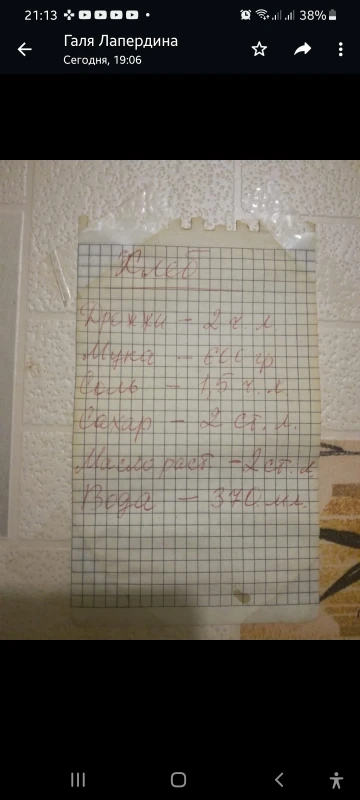 21:13
38%
Галя Лапердина
Сегодня, 19:06
Хлеб
Дрожжи - 2 ч. л
Мука - 600 гр.
Соль - 1,5 ч. л
Сахар - 2 ст. л.
Масло раст. - 2 ст. л
Вода - 370 мл.